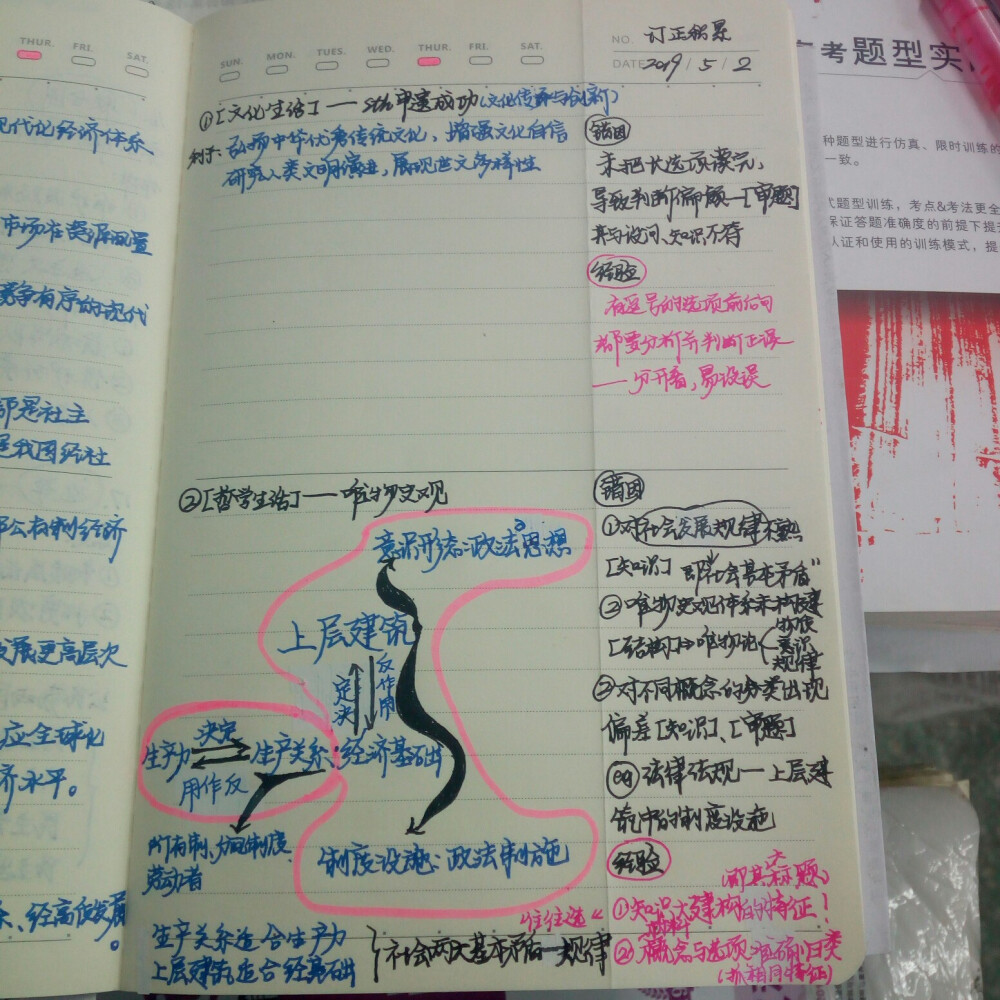 THUR. FRI. SAT.
现代化经济体系
市场在资源配置
竞争有序的现代
都是社主
是我国经社
公有制经济
发展更高层次
应全球化
济水平。
、经高低发展
。
SUN. MON. TUES. WED. THUR. FRI. SAT.
NO. 订正积累
DATE 2019/5/2
①[文化生活]——sth申遗成功(文化传承与创新)
利于:弘扬中华优秀传统文化,增强文化自信
研究人类文明演进,展现世文多样性
错因
未把长选项读完,
导致判断偏颇—[审题]
并与设问、知识不符
经验
有逗号的选项前后句
都要分析并判断正误
——分开看,易设误
②[哲学生活]——唯物史观
意识形态:政法思想
上层建筑
决定
反作用
生产力
决定
反作用
生产关系:经济基础
所有制、分配制度、
劳动者
制度设施:政法制施
生产关系适合生产力
上层建筑适合经基础
}社会两大基本矛盾—规律
往往选“
错因
①对社会发展规律不熟
[知识] 即“社会基本矛盾”
②唯物史观体系未构建
[结构]
唯物论
物质
意识
规律
③对不同概念的分类出现
偏差[知识]、[审题]
eg 法律法规—上层建
筑中的制度设施
经验
①知识大建构的特征!
②概念与选项准确归类
(抓相月特征)
考题型实
种题型进行仿真、限时训练的
一致。
题型训练,考点&考法更全
保证答题准确度的前提下提升
认证和使用的训练模式,提